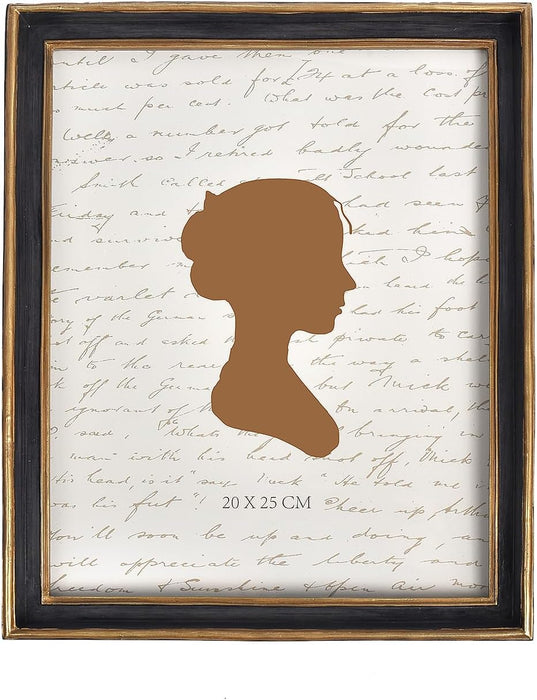 until I gave them one
which was sold for I/4 at a loss. of
so much per cent. What was the cost pr
Well, a number got told for the
answer. so I retired badly wounde
Smith called School last
Friday and had seen
and surviv
remember which I hope
varlet on heard the
of the German had his foot
off and asked private to car
to the rea the way a shel
off the Germa but Mick w
ignorant of On arrival, the
I said, "Whats bringing in
man" with his head not off, Mick
His head, is it" says Mick "He told me
was his fut"! Cheer up, Arthur
20 X 25 CM
You'll soon be up and doing, an
will appreciate the liberty and
freedom & Sunshine & open air mor